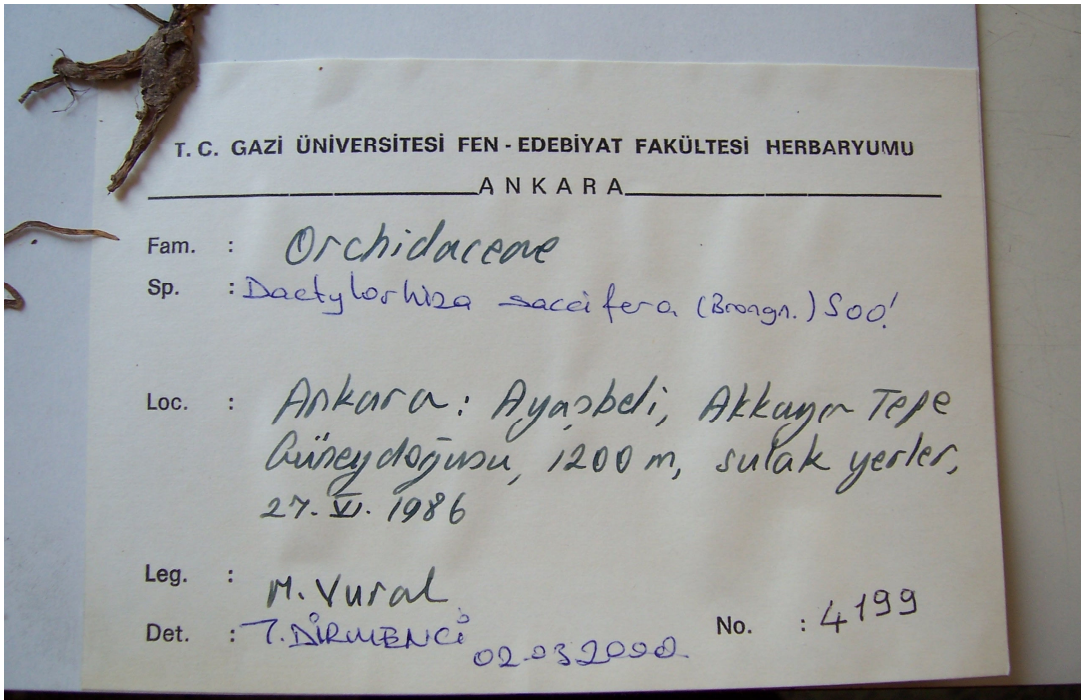 T. C. GAZİ ÜNİVERSİTESİ FEN - EDEBİYAT FAKÜLTESİ HERBARYUMU
ANKARA
Fam. : Orchidaceae
Sp. : Dactylorhiza saccifera (Brongn.) Soo!
Loc. : Ankara: Ayaşbeli, Akkaya Tepe
Güneydoğusu, 1200 m, sulak yerler,
27. VI. 1986
Leg. : M. Vural
Det. : T. DİRMENCİ 02.03.2000
No. : 4199